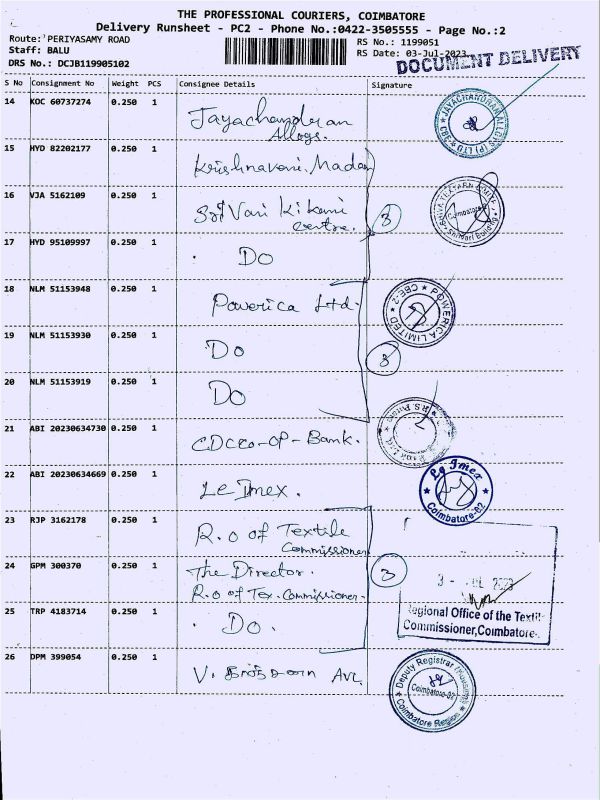 THE PROFESSIONAL COURIERS, COIMBATORE
Delivery Runsheet - PC2 - Phone No.:0422-3505555 - Page No.:2
Route: PERIYASAMY ROAD RS No.: 1199051
Staff: BALU RS Date: 03-Jul-2023
DRS No.: DCJB119905102 DOCUMENT DELIVERY
S No Consignment No Weight PCS Consignee Details Signature
14 KOC 60737274 0.250 1 Jayachandran Alloys.
JAYACHANDRAM ALLOYS (P) LTD
15 HYD 82202177 0.250 1 Krishnaveni. Madam
16 VJA 5162109 0.250 1 Vari Kikeni Centre. 3
Coimbatore
Building
17 HYD 95109997 0.250 1 Do
18 NLM 51153948 0.250 1 Powerica Ltd.
POWERICA LIMITED CBE-2
19 NLM 51153930 0.250 1 Do 3
20 NLM 51153919 0.250 1 Do
21 ABI 20230634730 0.250 1 CDCCO-OP-Bank.
22 ABI 20230634669 0.250 1 Le Imex.
Le Imex
Coimbatore-02
23 RJP 3162178 0.250 1 R.o of Textile
Commissioner
24 GPM 300370 0.250 1 The Director.
R.o of Tex. Commissioner. 3
Regional Office of the Textile
Commissioner,Coimbatore-
25 TRP 4183714 0.250 1 Do.
26 DPM 399054 0.250 1 V.
Deputy Registrar (Housing)
Coimbatore-02
Coimbatore Region